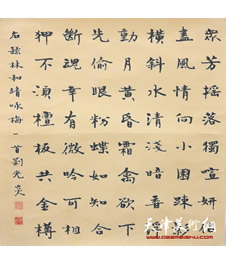 眾芳搖落獨暄妍占
盡風情向小園疎影
橫斜水清淺暗香浮
動月黃昏霜禽欲下
先偷眼粉蝶如知合
斷魂幸有微吟可相
狎不須檀板共金樽
右錄林和靖詠梅一首劉光
天津美術網